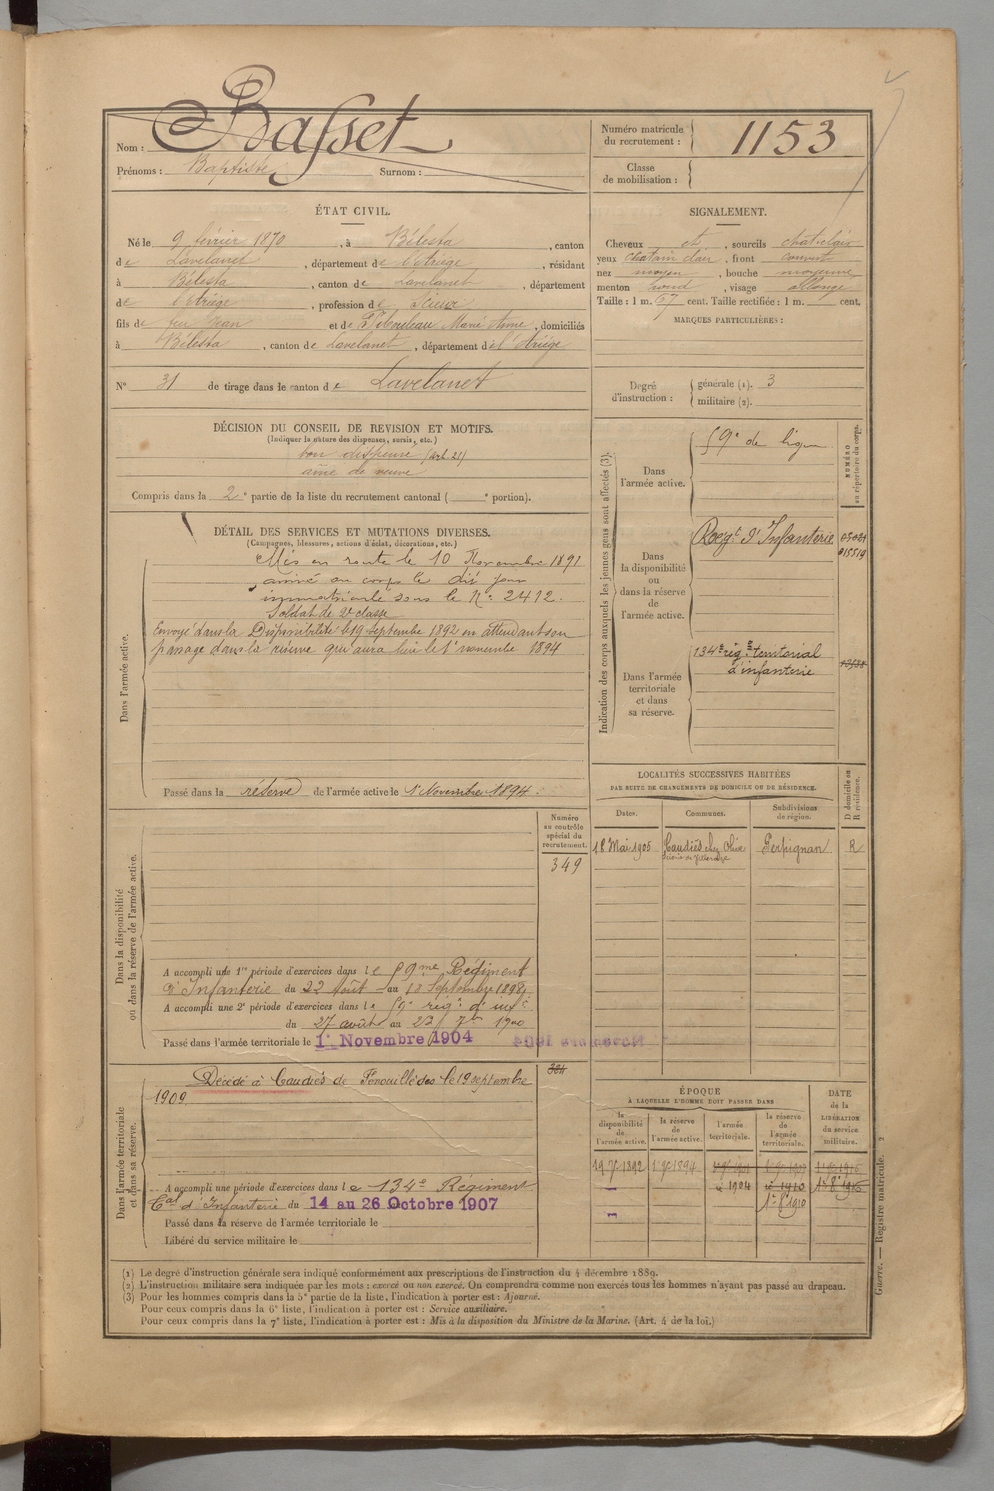 Nom : Basset
Prénoms : Baptiste Surnom :
Numéro matricule du recrutement : 1153
Classe de mobilisation :
ÉTAT CIVIL.
Né le 9 février 1870, à Bélesta, canton
de Lavelanet, département de l'Ariège, résidant
à Bélesta, canton de Lavelanet, département
de l'Ariège, profession de Scieur
fils de feu Jean et de Marie Anne, domiciliés
à Bélesta, canton de Lavelanet, département de l'Ariège
N° 31 de tirage dans le canton de Lavelanet
SIGNALEMENT.
Cheveux et, sourcils chat. clair
yeux chatain clair, front couvert
nez moyen, bouche moyenne
menton rond, visage allongé
Taille : 1 m. 67 cent. Taille rectifiée : 1 m. cent.
MARQUES PARTICULIÈRES :
Degré d'instruction : générale (1). 3
militaire (2).
DÉCISION DU CONSEIL DE REVISION ET MOTIFS.
(Indiquer la nature des dispenses, sursis, etc.)
bon dispensé (Art. 21)
aîné de veuve
Compris dans la 2e partie de la liste du recrutement cantonal ( e portion).
DÉTAIL DES SERVICES ET MUTATIONS DIVERSES.
(Campagnes, blessures, actions d'éclat, décorations, etc.)
Dans l'armée active.
Mis en route le 10 Novembre 1891
arrivé au corps le dit jour
immatriculé sous le N° 2412.
Soldat de 2e classe
Envoyé dans la Disponibilité le 19 septembre 1892 en attendant son
passage dans la réserve qui aura lieu le 1er novembre 1894
Passé dans la réserve de l'armée active le 1er Novembre 1894.
Indication des corps auxquels les jeunes gens sont affectés (3).
NUMÉRO au répertoire du corps.
Dans l'armée active.
59e de ligne
Dans la disponibilité ou dans la réserve de l'armée active.
Régt d'Infanterie
015519
Dans l'armée territoriale et dans sa réserve.
134e rég. territorial
d'infanterie
LOCALITÉS SUCCESSIVES HABITÉES
PAR SUITE DE CHANGEMENTS DE DOMICILE OU DE RÉSIDENCE.
Dates. Communes. Subdivisions de région. D domicile ou R résidence.
18 Mai 1905 Caudiès chez Perpignan R
Dans la disponibilité ou dans la réserve de l'armée active.
Numéro au contrôle spécial du recrutement.
349
A accompli une 1re période d'exercices dans le 59me Régiment
d'Infanterie du 22 Août au Septembre 1898
A accompli une 2e période d'exercices dans le 59e rég. d'inf.
du 27 août au 23 7bre 1900
Passé dans l'armée territoriale le 1er Novembre 1904
Dans l'armée territoriale et dans sa réserve.
Décédé à Caudiès de Fenouillèdes le 19 septembre
1909
A accompli une période d'exercices dans le 134e Régiment
Cal d'Infanterie du 14 au 26 Octobre 1907
Passé dans la réserve de l'armée territoriale le
Libéré du service militaire le
ÉPOQUE
À LAQUELLE L'HOMME DOIT PASSER DANS
la disponibilité de l'armée active. la réserve de l'armée active. l'armée territoriale. la réserve de l'armée territoriale.
DATE de la LIBÉRATION du service militaire.
19 7e 1892
1904
1er 8e 1910
(1) Le degré d'instruction générale sera indiqué conformément aux prescriptions de l'instruction du 4 décembre 1889.
(2) L'instruction militaire sera indiquée par les mots : exercé ou non exercé. On comprendra comme non exercés tous les hommes n'ayant pas passé au drapeau.
(3) Pour les hommes compris dans la 5e partie de la liste, l'indication à porter est : Ajourné.
Pour ceux compris dans la 6e liste, l'indication à porter est : Service auxiliaire.
Pour ceux compris dans la 7e liste, l'indication à porter est : Mis à la disposition du Ministre de la Marine. (Art. 4 de la loi.)
Guerre. — Registre matricule. 2